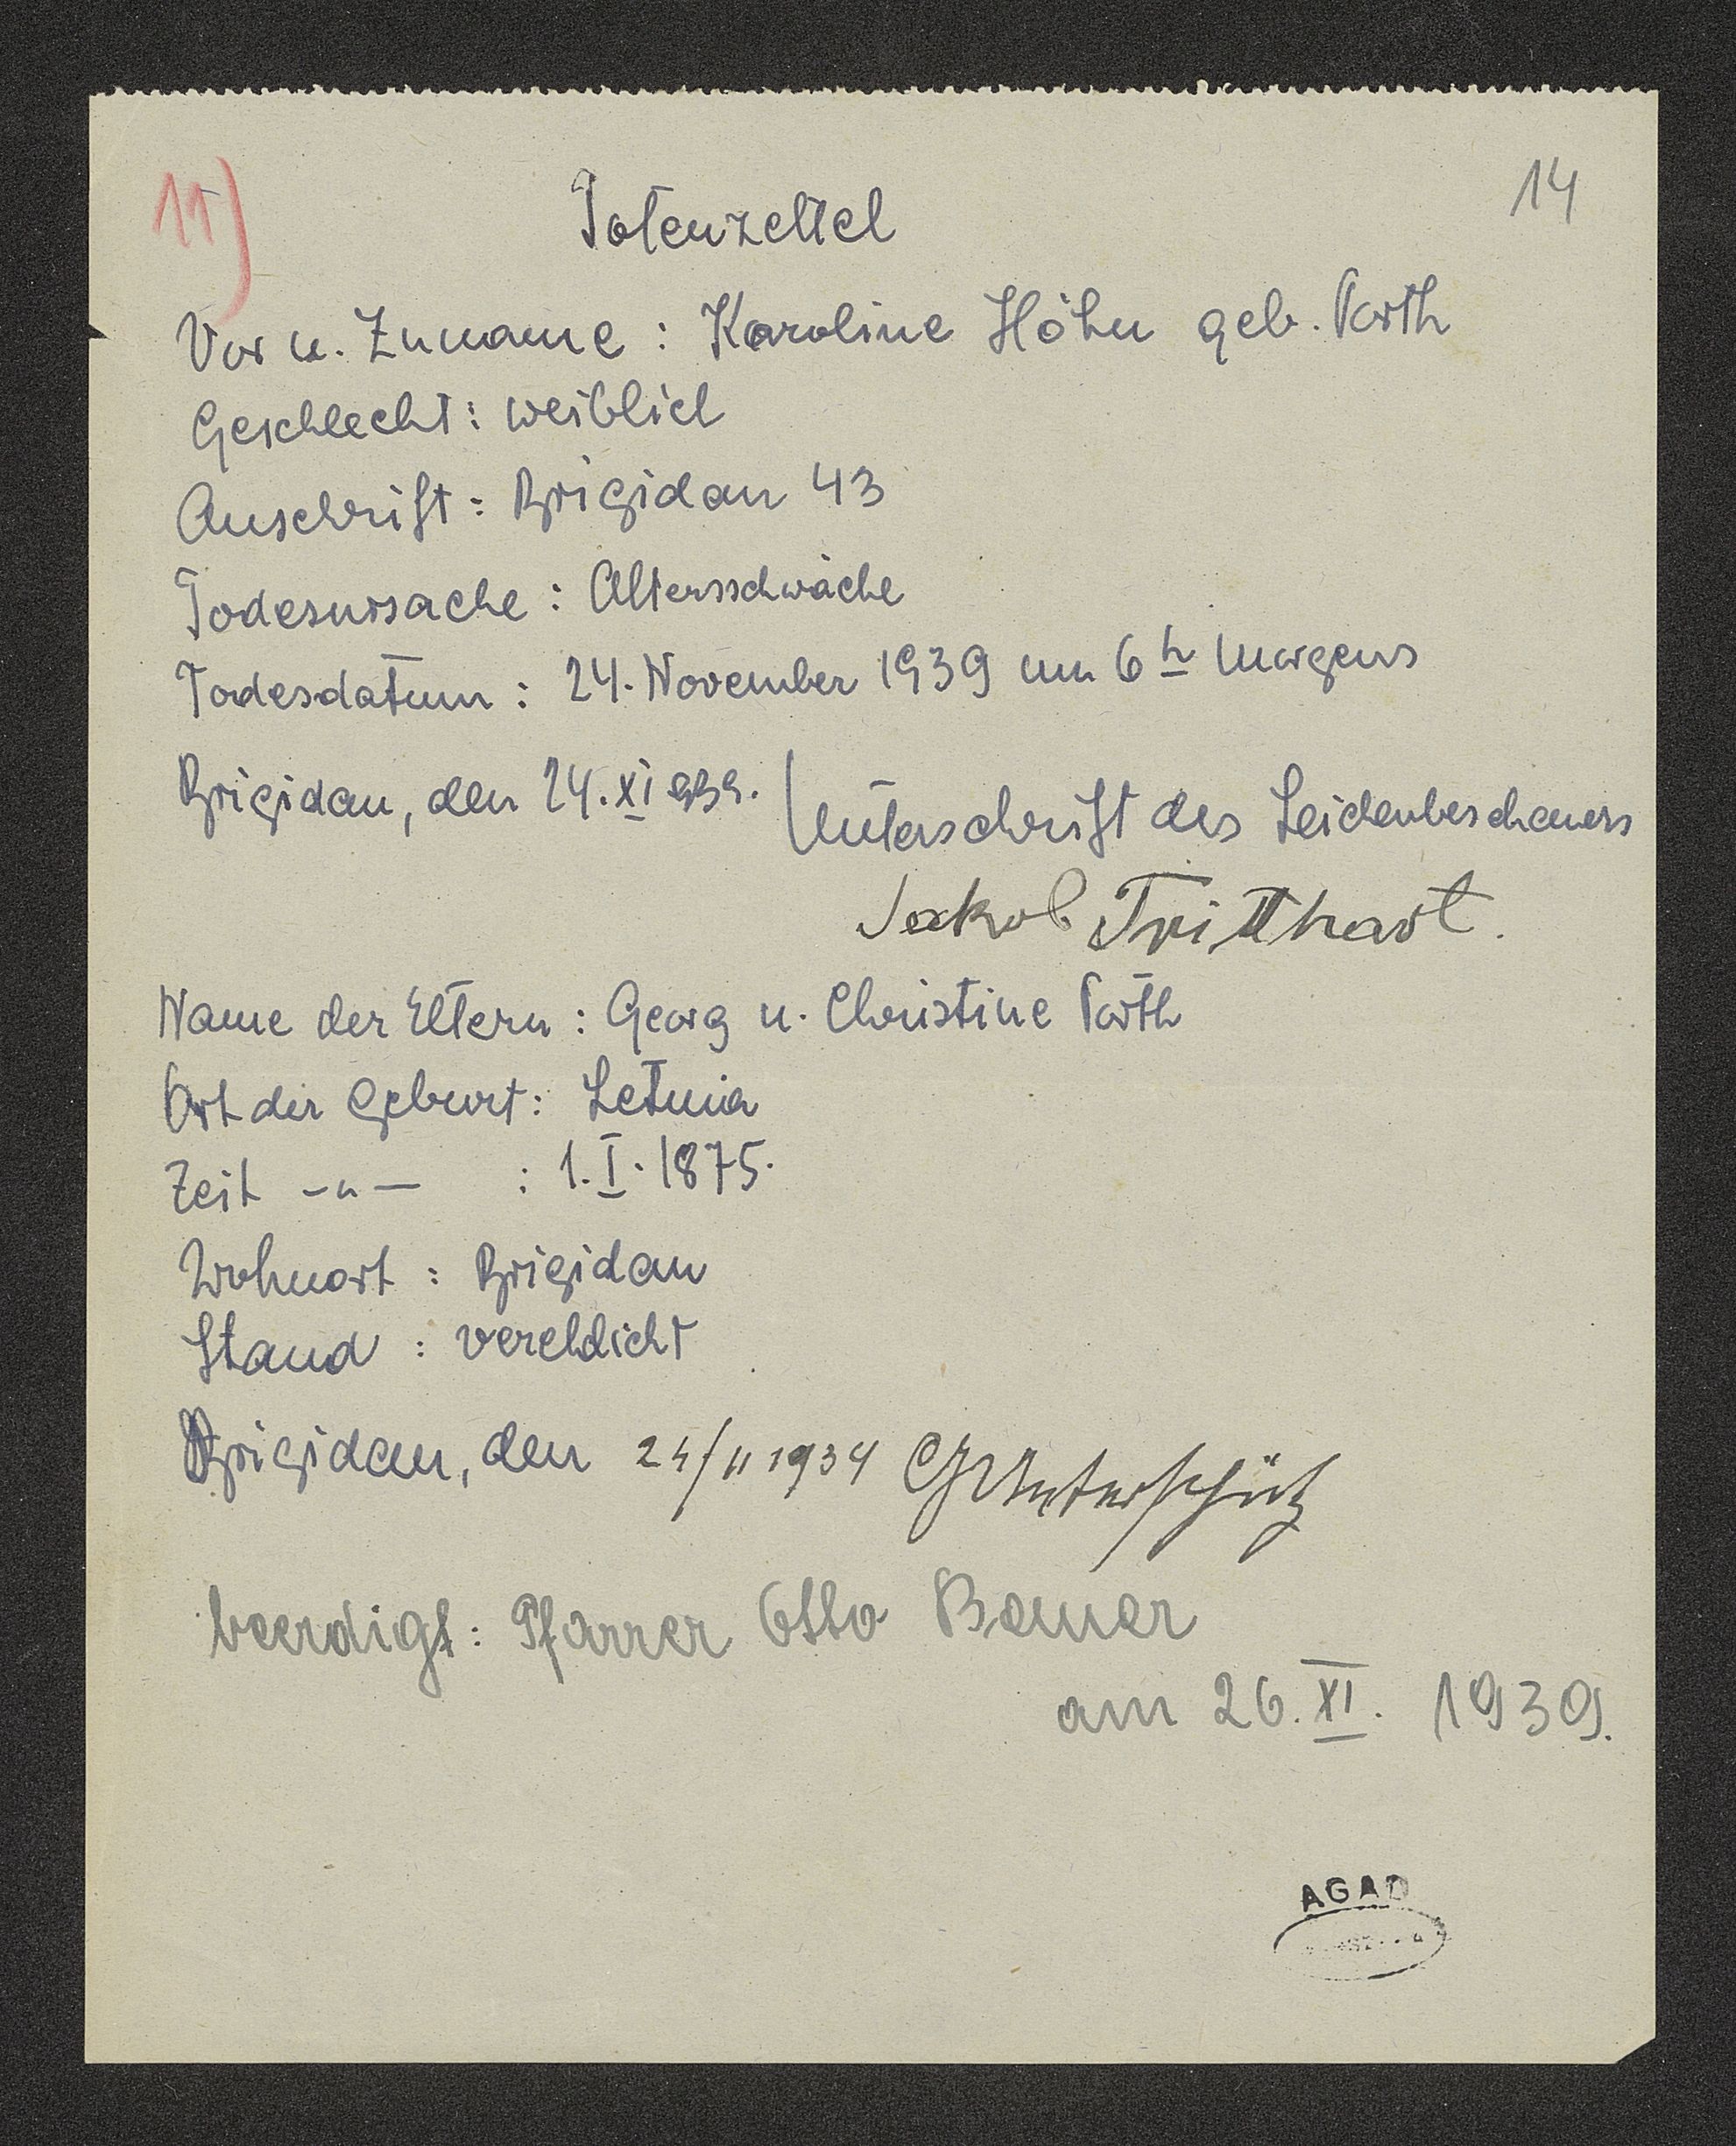 11)
14
Totenzettel
Vor u. Zuname : Karoline Höhn geb. Porth
Geschlecht : weiblich
Anschrift : Brigidau 43
Todesursache : Altersschwäche
Todesdatum : 24. November 1939 um 6 h morgens
Brigidau, den 24. XI 939. Unterschrift des Leichenbeschauers
Jakob Tritthart.
Name der Eltern : Georg u. Christine Porth
Ort der Geburt : Letnia
Zeit -"- : 1. I. 1875.
Wohnort : Brigidau
Stand : verehlicht
Brigidau, den 24/11 1934 Unterschütz
beerdigt : Pfarrer Otto Bauer
am 26. XI. 1939.
AGAD